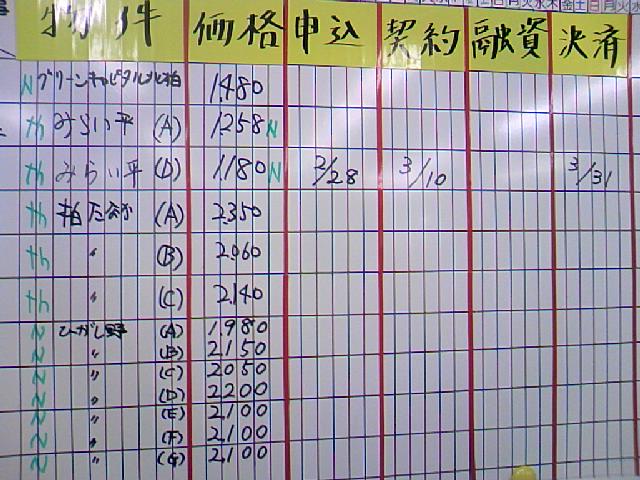 物件 価格 申込 契約 融資 決済
N グリーンキャピタル北柏 1,480
th みらい平 (A) 1258 N
th みらい平 (D) 1,180 N 2/28 3/10 3/31
th 柏 (A) 2350
th 〃 (B) 2,060
th 〃 (C) 2,140
N ひがし野 (A) 1,980
N 〃 (B) 2150
N 〃 (C) 2050
N 〃 (D) 2200
N 〃 (E) 2,100
N 〃 (F) 2,100
N 〃 (G) 2,100